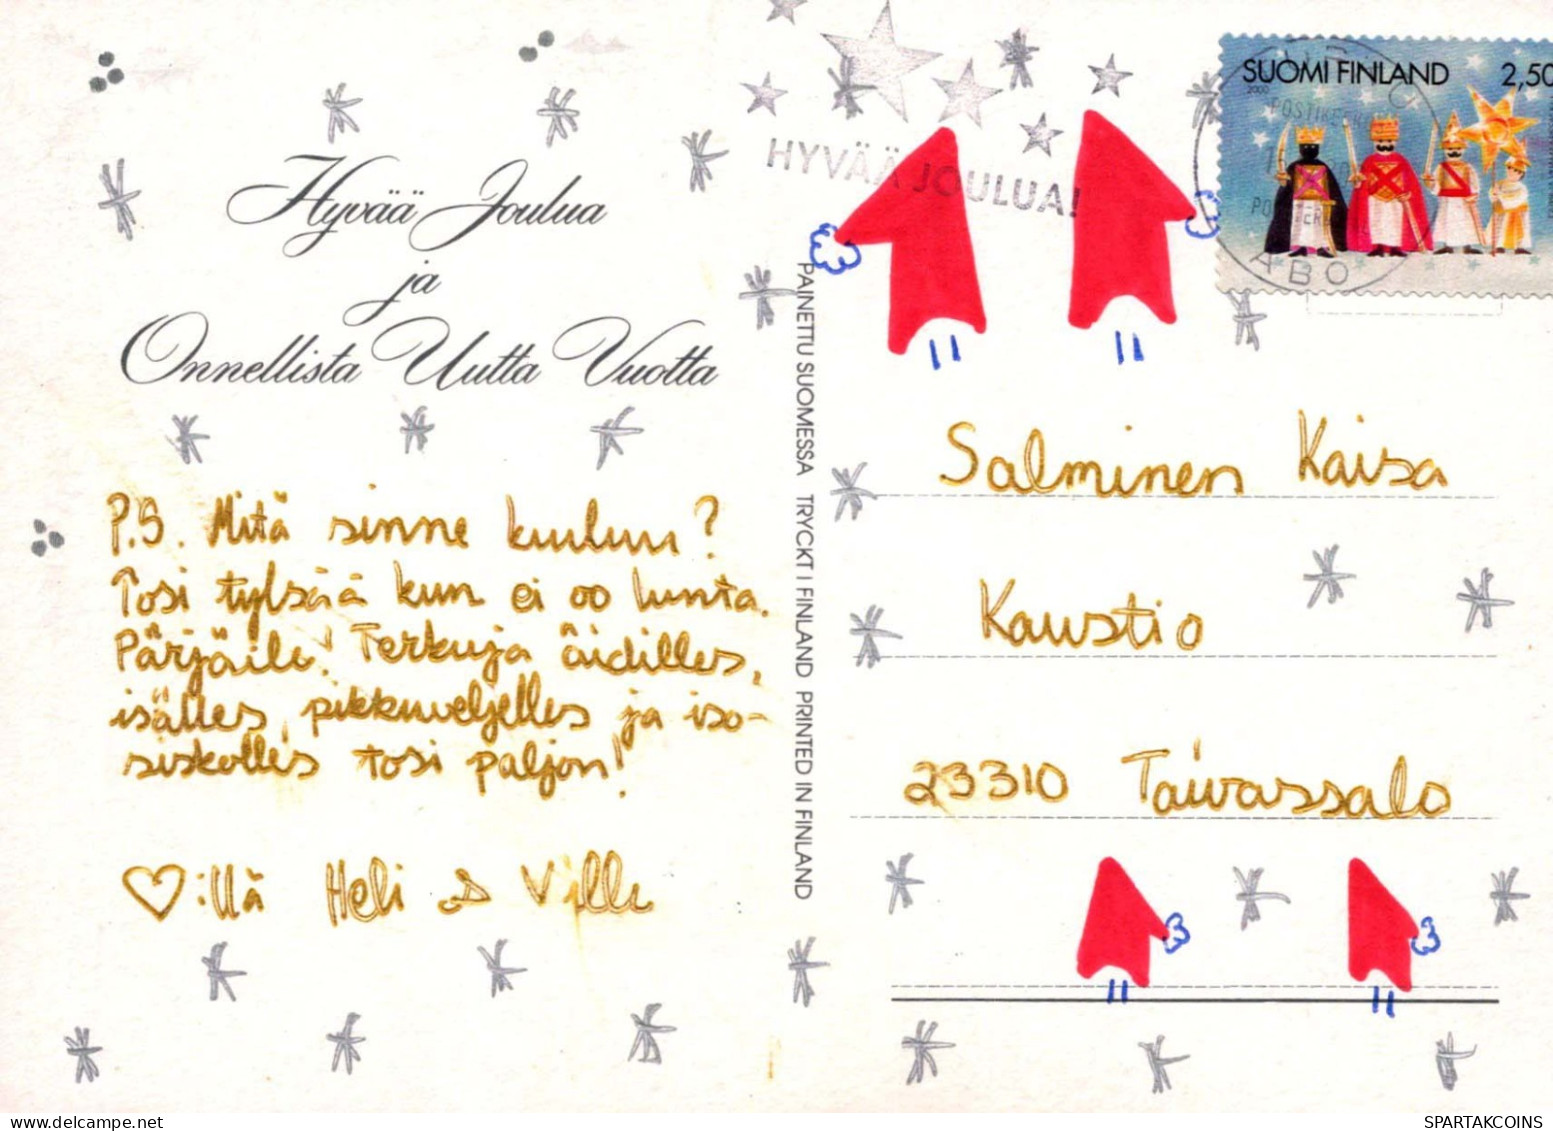 Hyvää Joulua
ja
Onnellista Uutta Vuotta
P.S. Mitä sinne kuuluu?
Tosi tylsää kun ei oo lunta.
Pärjäile! Terkuja äidilles,
isälles, pikkuveljelles ja iso-
siskolles tosi paljon!
♡:llä Heli & Ville
PAINETTU SUOMESSA TRYCKT I FINLAND PRINTED IN FINLAND
HYVÄÄ JOULUA!
SUOMI FINLAND 2,50
2000
ABO
Salminen Kaisa
Kaustio
23310 Taivassalo
SPARTAKCOINS